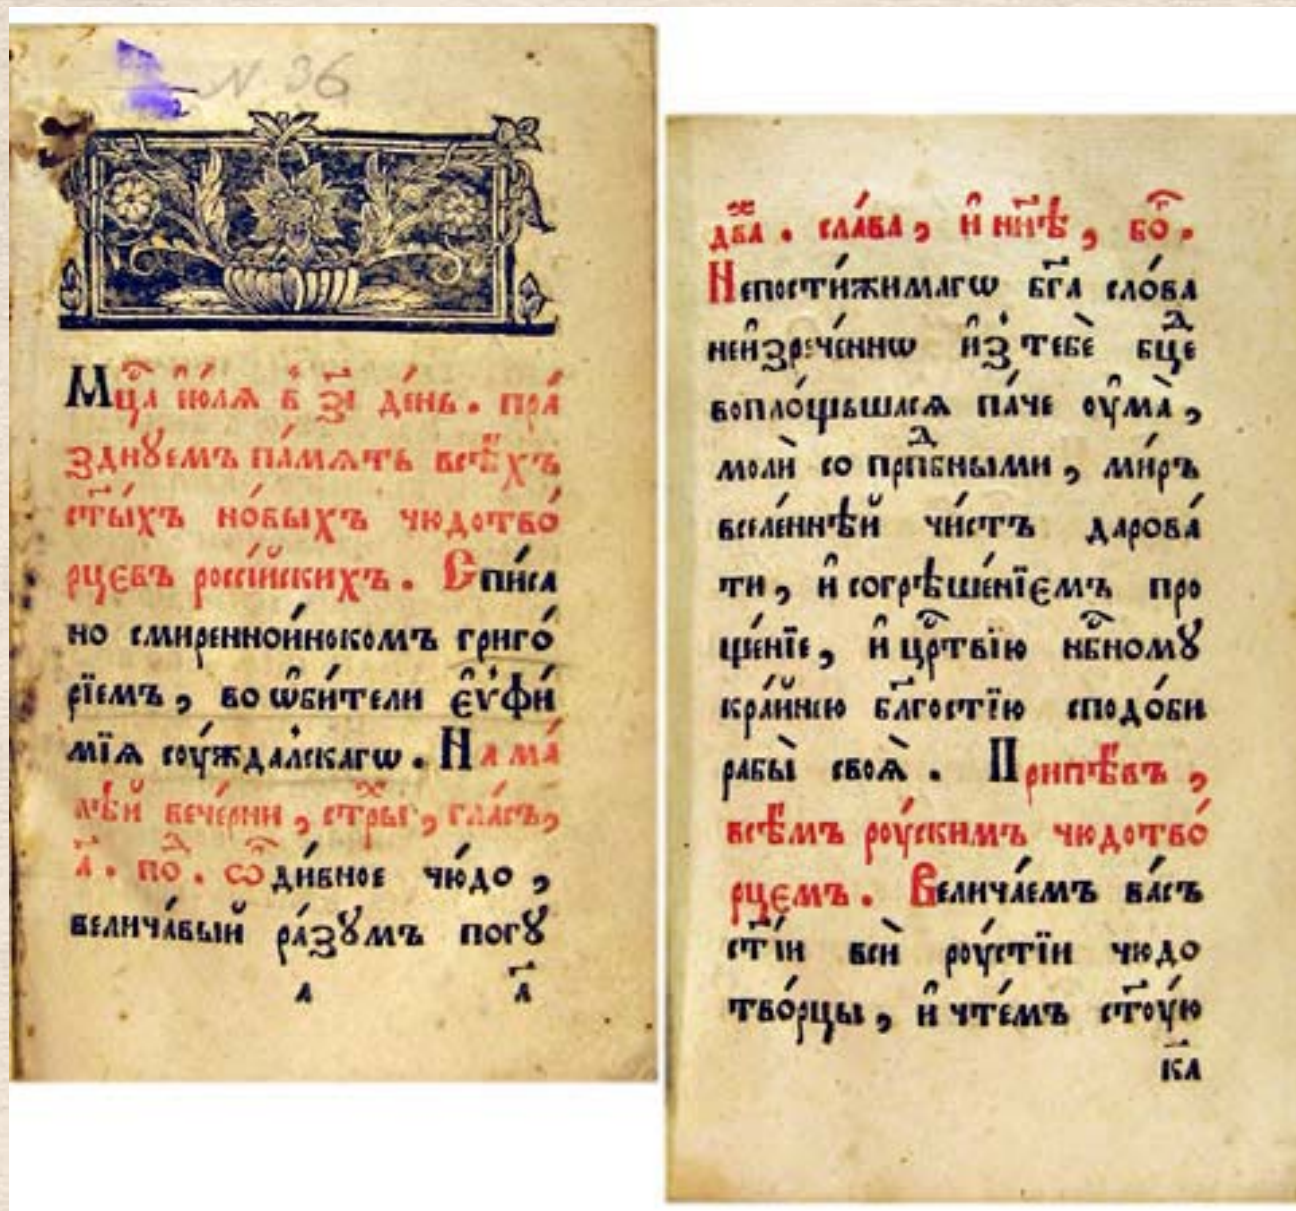 N 36
Мц҃а ію́лѧ в҃ з҃і де́нь . пра́
зднꙋемъ па́мѧть всѣ́хъ
ст҃ы́хъ но́выхъ чюдотво́
рцєвъ россі́йскихъ . Спи́са
но смиренноинокомъ григо́
рїемъ , во ѡби́тели єѵфи́
мїѧ соу́ждалскагѡ . На ма́
лѣй вече́рни , стр҃ы , гла́съ ,
а҃ . по . ѿ ди́вное чю́до ,
велича́вый ра́зꙋмъ погꙋ
а а҃
два . сла́ва , и нн҃ѣ , бо .
Непости́жимагѡ бг҃а сло́ва
неизрече́ннѡ из тебѐ бц҃е
вопло́щьшасѧ па́че оума̀ ,
молѝ со прпⷣбными , ми́ръ
вселе́ннѣй чи́стъ дарова́
ти , и согрѣше́нїємъ про
ще́нїе , и црⷭ҇твїю нбⷭ҇номꙋ
кра́йнею блг҃остїю сподо́би
рабы̀ своѧ̀ . Припѣ́въ ,
всѣ́мъ роу́скимъ чюдотво́
рцємъ . Велича́емъ ва́съ
ст҃і́и всѝ роу́стїи чюдо
тво́рцы , и чте́мъ ст҃оу́ю
к҃а